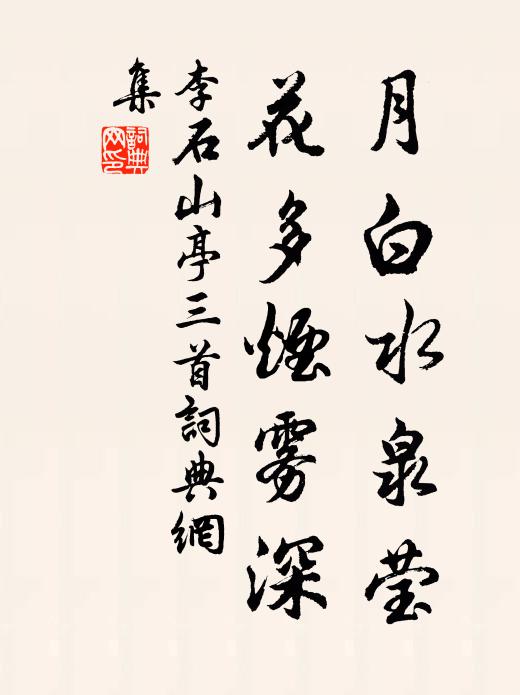 月白水泉莹
花多煙雾深
李石山亭三首詞典網
集
詞典網印